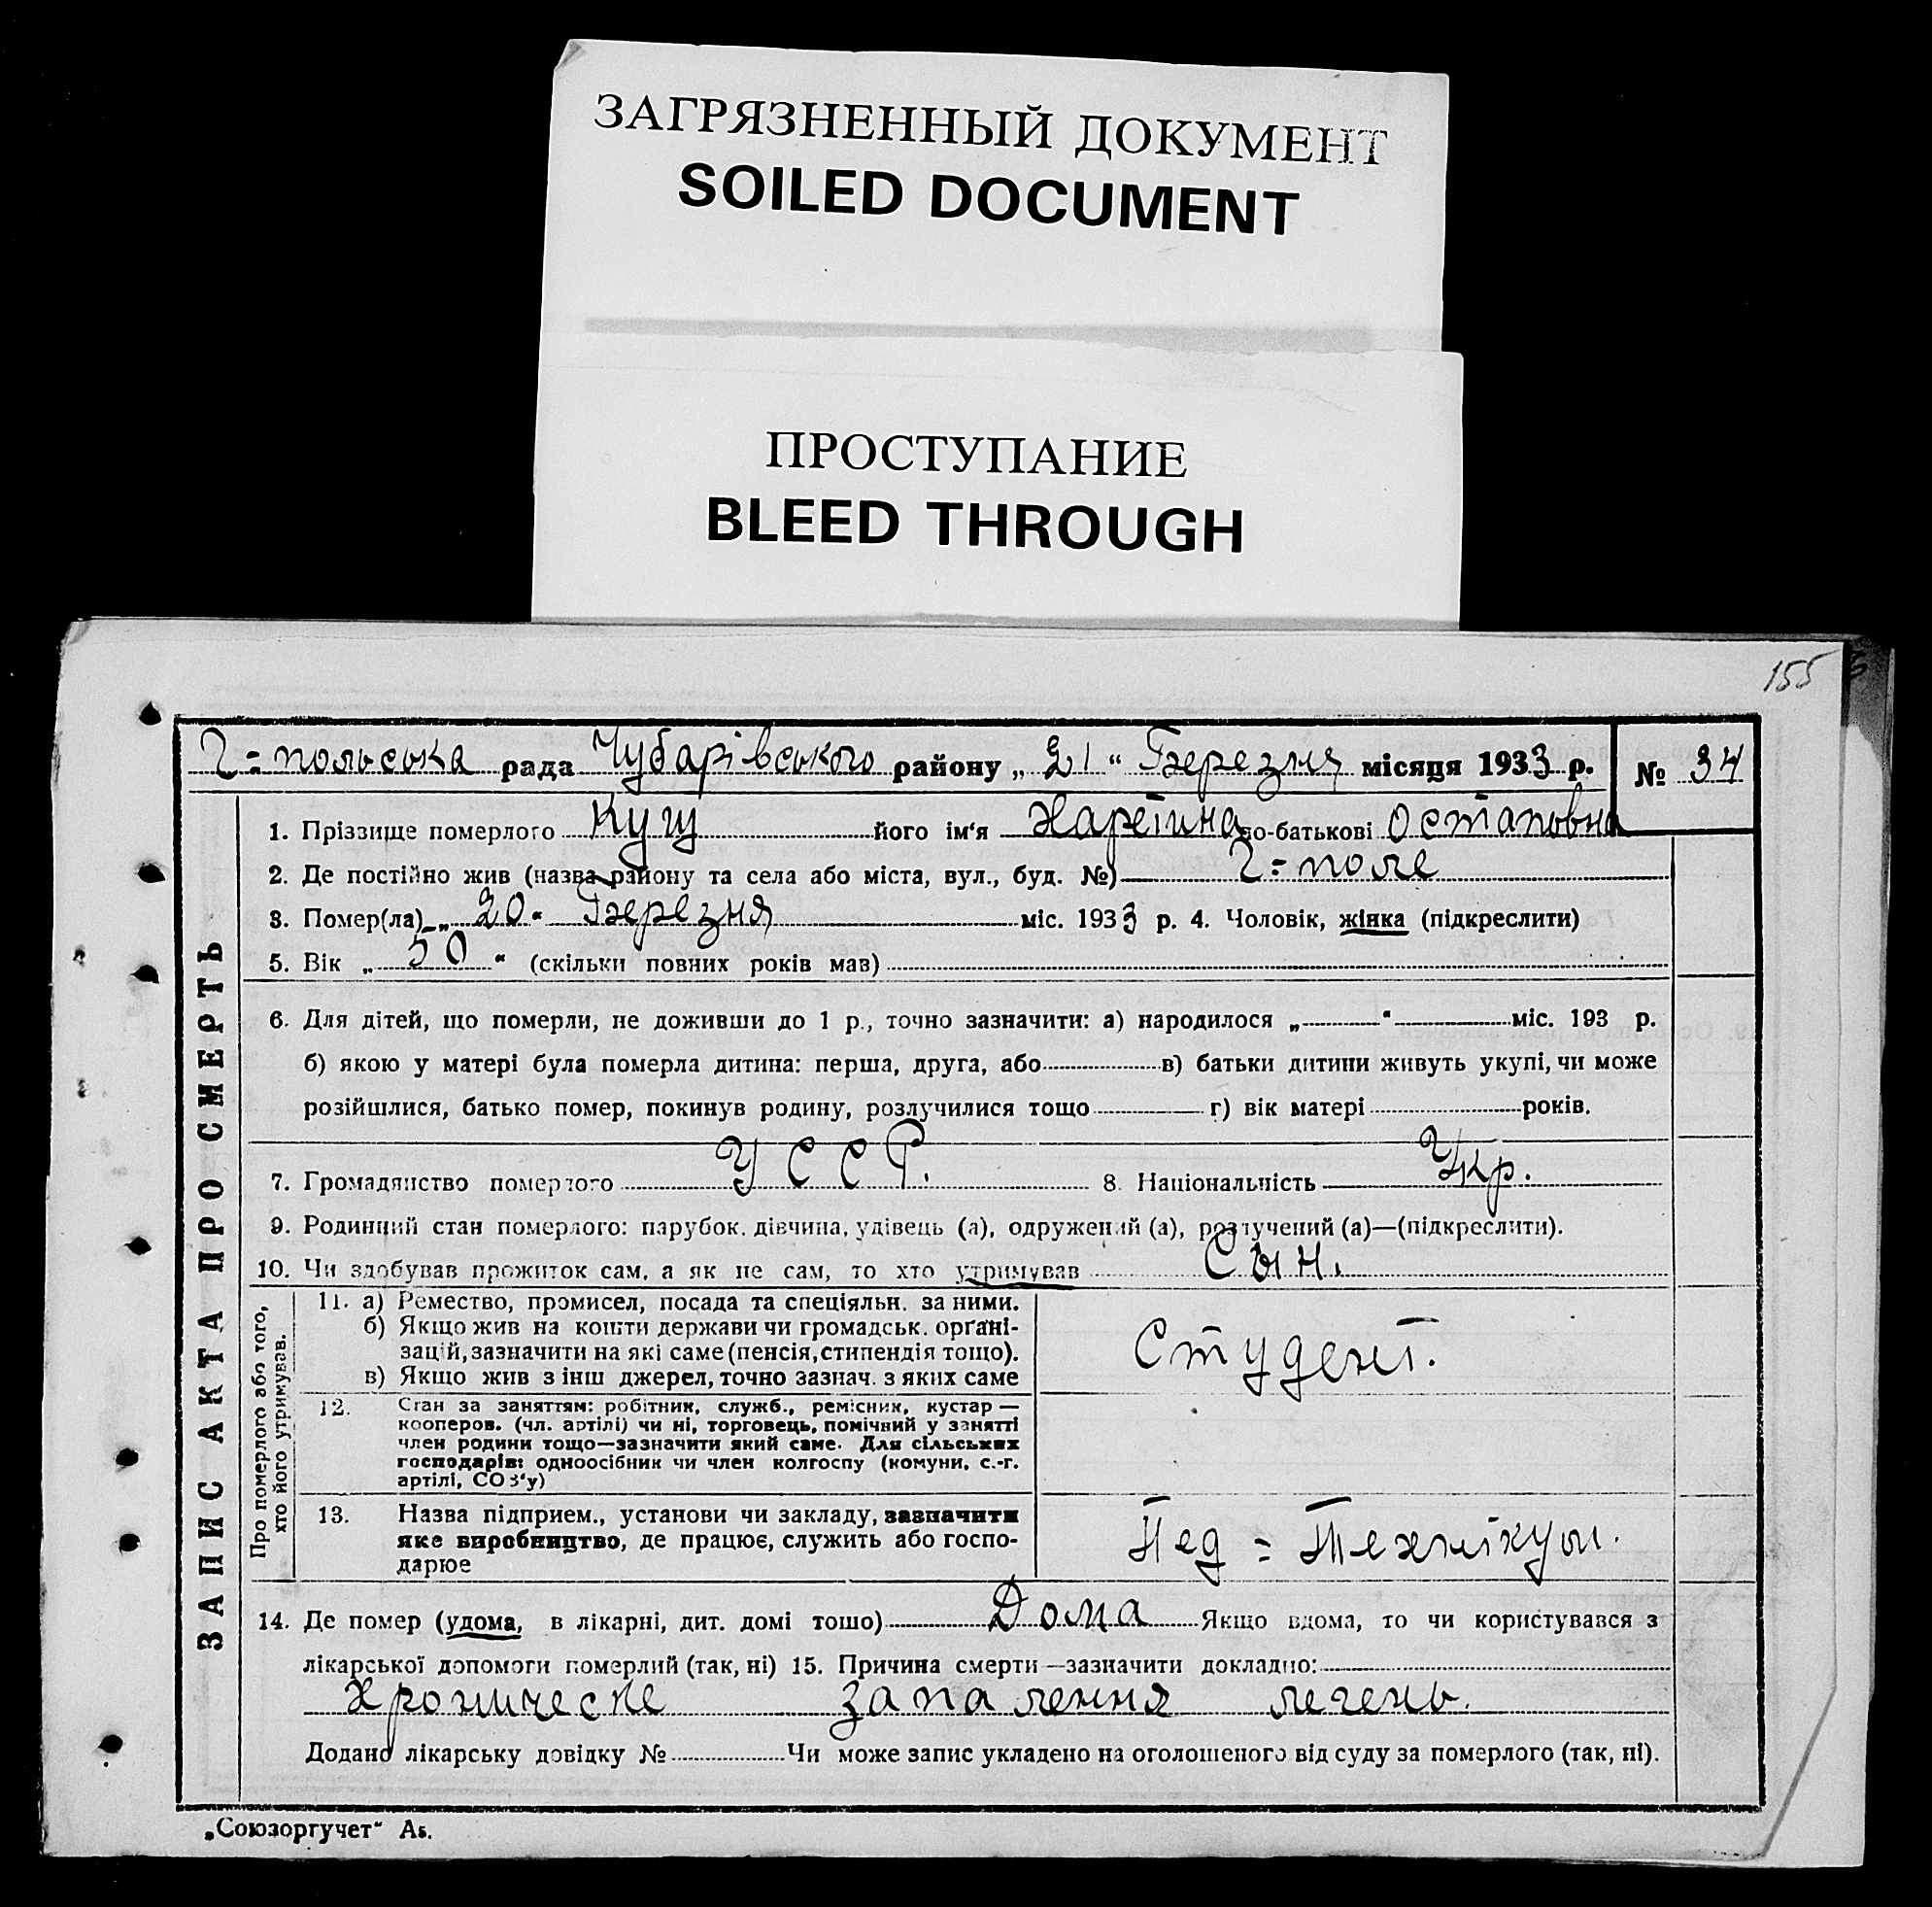 ЗАГРЯЗНЕННЫЙ ДОКУМЕНТ
SOILED DOCUMENT
ПРОСТУПАНИЕ
BLEED THROUGH
155
Г=польська рада Чубарівського району „ 21 “ Березня місяця 1933 р. № 34
ЗАПИС АКТА ПРО СМЕРТЬ
1. Пріззище померлого Кущ його ім‘я Харетина по-батькові Остаповна
2. Де постійно жив (назва району та села або міста, вул., буд. №) Г=поле
3. Помер(ла) „ 20 “ Березня міс. 1933 р. 4. Чоловік, жінка (підкреслити)
5. Вік „ 50 “ (скільки повних років мав)
6. Для дітей, що померли, не доживши до 1 р., точно зазначити: а) народилося „ “ міс. 193 р.
б) якою у матері була померла дитина: перша, друга, або в) батьки дитини живуть укупі, чи може
розійшлися, батько помер, покинув родину, розлучилися тощо г) вік матері років.
7. Громадянство померлого УССР. 8. Національність Укр.
9. Родинний стан померлого: парубок, дівчина, удівець (а), одружений (а), розлучений (а)—(підкреслити).
10. Чи здобував прожиток сам, а як не сам, то хто утримував Сын.
Про померлого або того, хто його утримував.
11. а) Ремество, промисел, посада та спеціяльн. за ними.
б) Якщо жив на кошти держави чи громадськ. орґані-
зацій, зазначити на які саме (пенсія, стипендія тощо).
в) Якщо жив з інш джерел, точно зазнач. з яких саме
Студент.
12. Стан за заняттям: робітник, служб., ремісник, кустар —
кооперов. (чл. артілі) чи ні, торговець, помічний у занятті
член родини тощо—зазначити який саме. Для сільських
господарів: одноосібник чи член колгоспу (комуни, с.-г.
артілі, СОЗ‘у)
13. Назва підприєм., установи чи закладу, зазначити
яке виробництво, де працює, служить або госпо-
дарює
Пед = Технікум.
14. Де помер (удома, в лікарні, дит. домі тощо) Дома Якщо вдома, то чи користувався з
лікарської допомоги померлий (так, ні) 15. Причина смерти—зазначити докладно:
хроническе запалення легень.
Додано лікарську довідку № Чи може запис укладено на оголошеного від суду за померлого (так, ні).
„Союзоргучет“ А5.